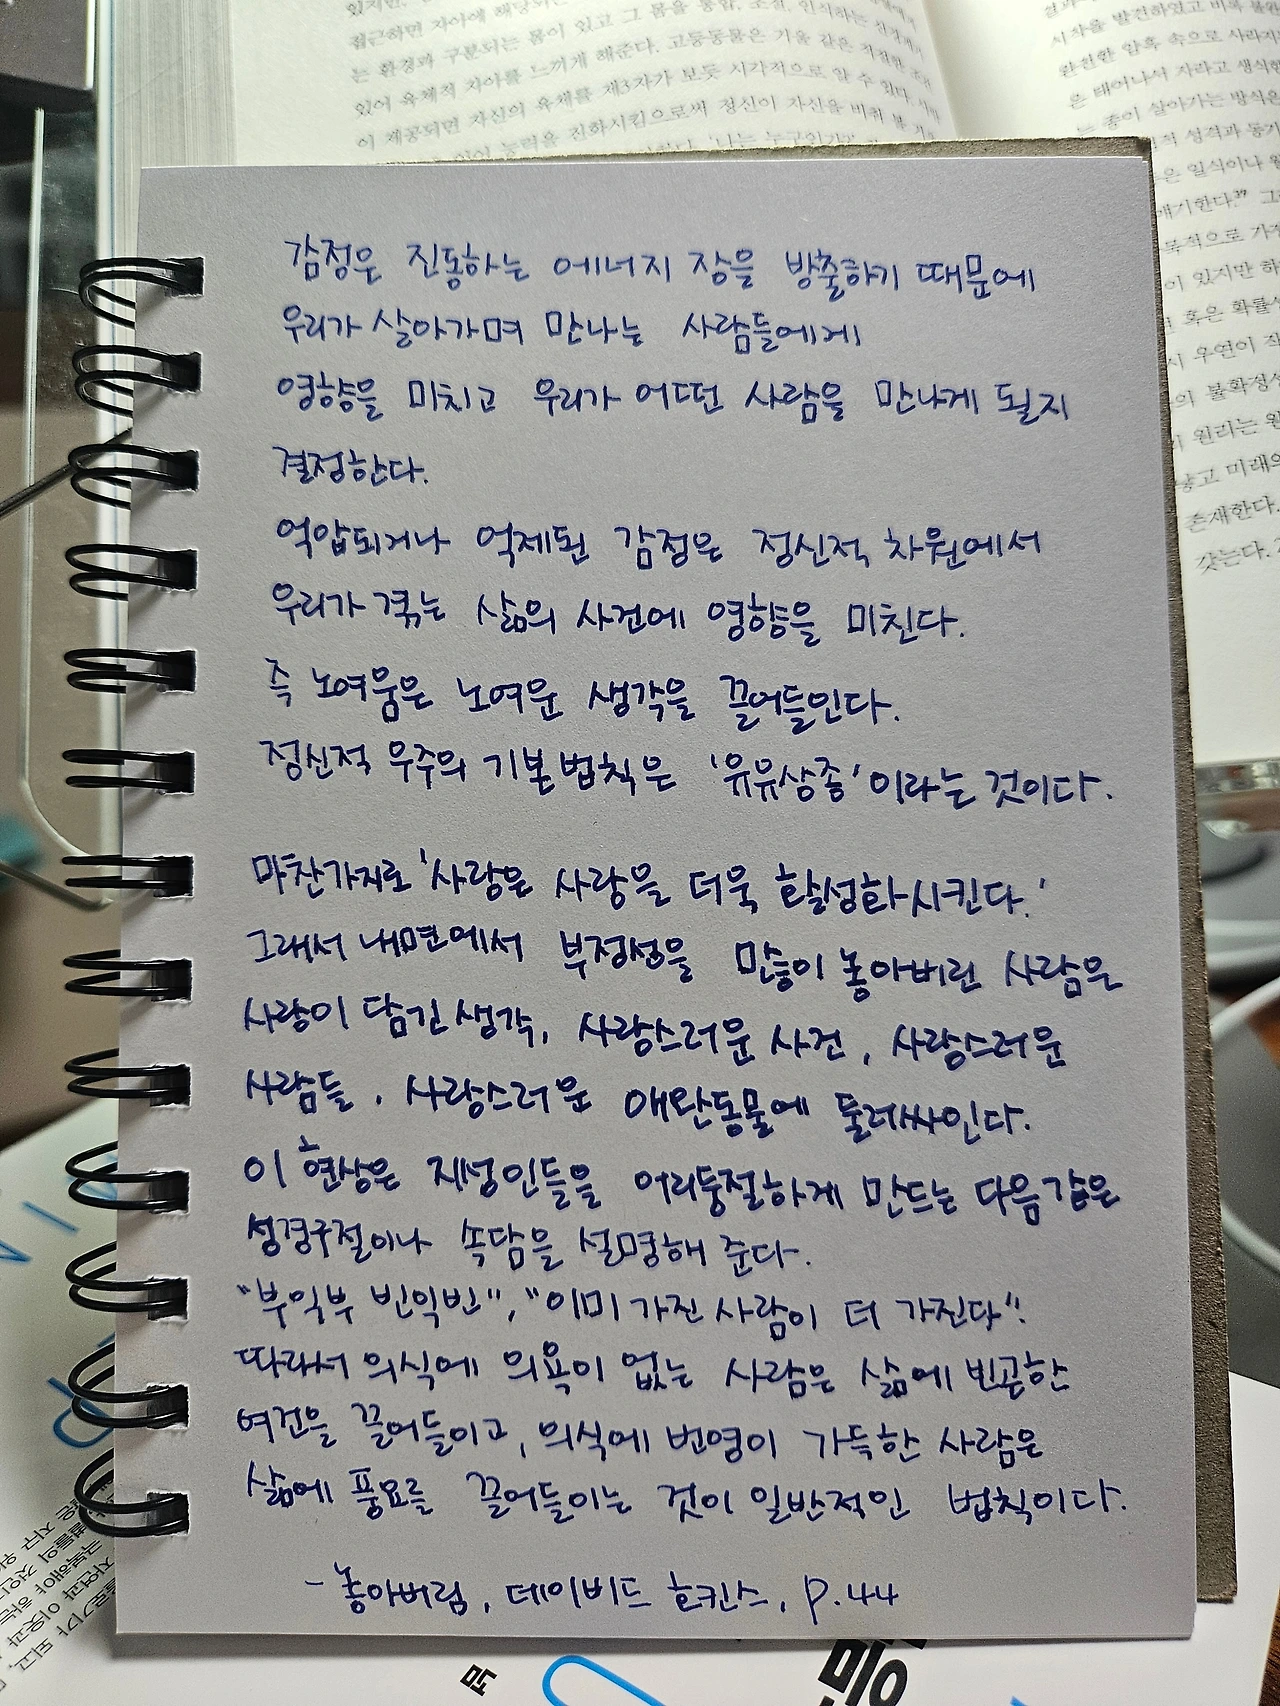 접근하면 자아에 해당되는 몸이 있고 그 몸을 통합, 조절, 인식하는
는 환경과 구분되는 몸이 있고
있어 육체적 자아를 느끼게 해준다. 고등동물은 거울 같은 적절한 조건
이 제공되면 자신의 육체를 제3자가 보듯 시각적으로 알 수 있다.
언어 능력을 진화시킴으로써 정신이 자신을 비춰 볼
시작을 발전하였고 비록
완전한 암흑 속으로 사라지
은 태어나서 자라고 생식한
는 종이 살아가는 방식은
적 성격과 동기
은 일식이나
얘기한다." 그
목적으로 가
이 있지만 하
혹은 확률
시 우연이 작
의 불확정성
원리는 원
고 미래의
존재한다.
갖는다.
감정은 진동하는 에너지 장을 방출하기 때문에
우리가 살아가며 만나는 사람들에게
영향을 미치고 우리가 어떤 사람을 만나게 될지
결정한다.
억압되거나 억제된 감정은 정신적 차원에서
우리가 겪는 삶의 사건에 영향을 미친다.
즉 노여움은 노여운 생각을 끌어들인다.
정신적 우주의 기본 법칙은 '유유상종'이라는 것이다.
마찬가지로 '사랑은 사랑을 더욱 활성화시킨다.'
그래서 내면에서 부정성을 많이 놓아버린 사람은
사랑이 담긴 생각, 사랑스러운 사건, 사랑스러운
사람들, 사랑스러운 애완동물에 둘러싸인다.
이 현상은 지성인들을 어리둥절하게 만드는 다음 같은
성경구절이나 속담을 설명해 준다.
"부익부 빈익빈", "이미 가진 사람이 더 가진다".
따라서 의식에 의욕이 없는 사람은 삶에 빈곤한
여건을 끌어들이고, 의식에 번영이 가득한 사람은
삶에 풍요를 끌어들이는 것이 일반적인 법칙이다.
- 놓아버림, 데이비드 호킨스, p.44